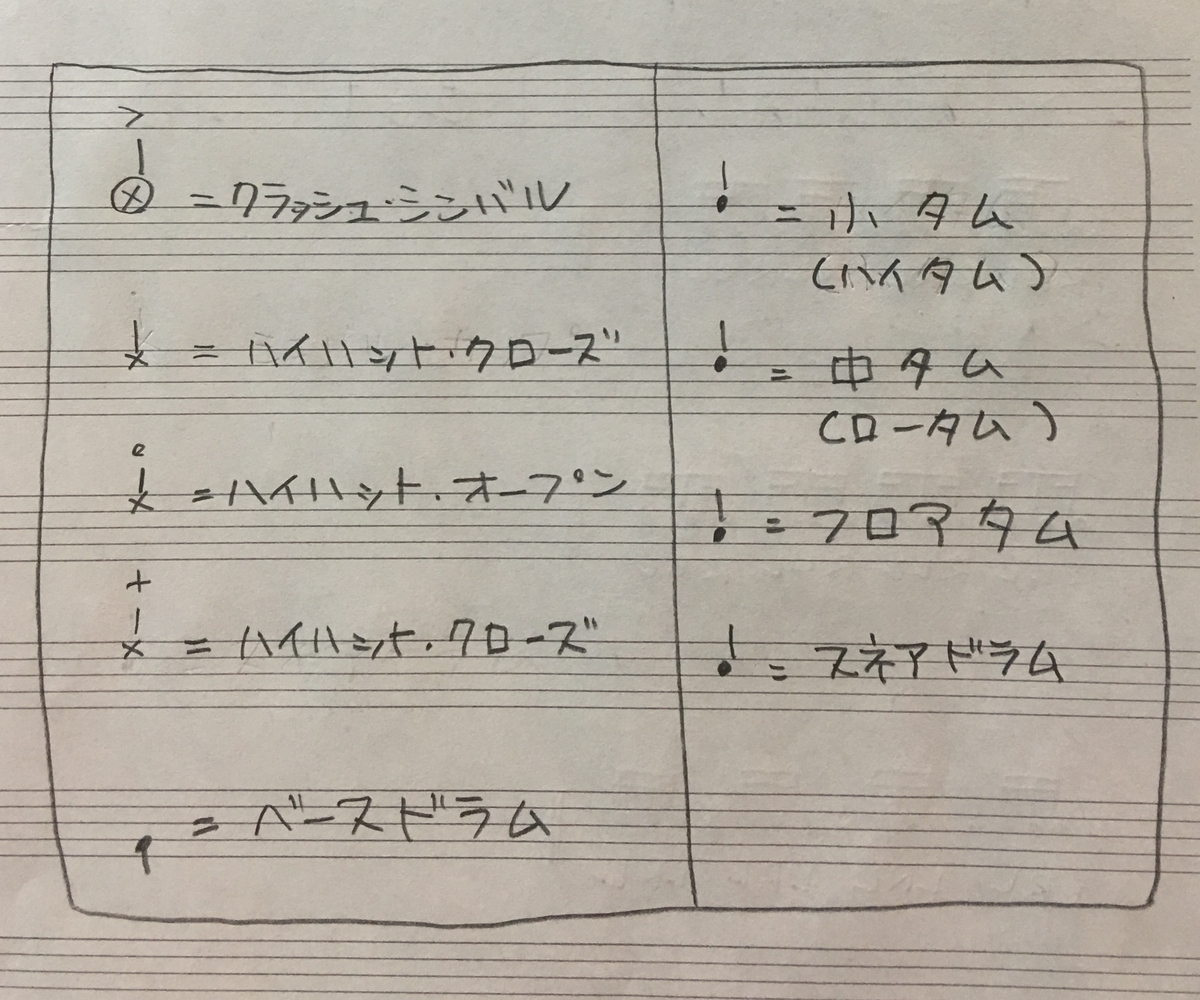 > ⓧ = クラッシュ・シンバル
x = ハイハット・クローズ
o x = ハイハット・オープン
+ x = ハイハット・クローズ
= ベースドラム
= 小タム
(ハイタム)
= 中タム
(ロータム)
= フロアタム
= スネアドラム